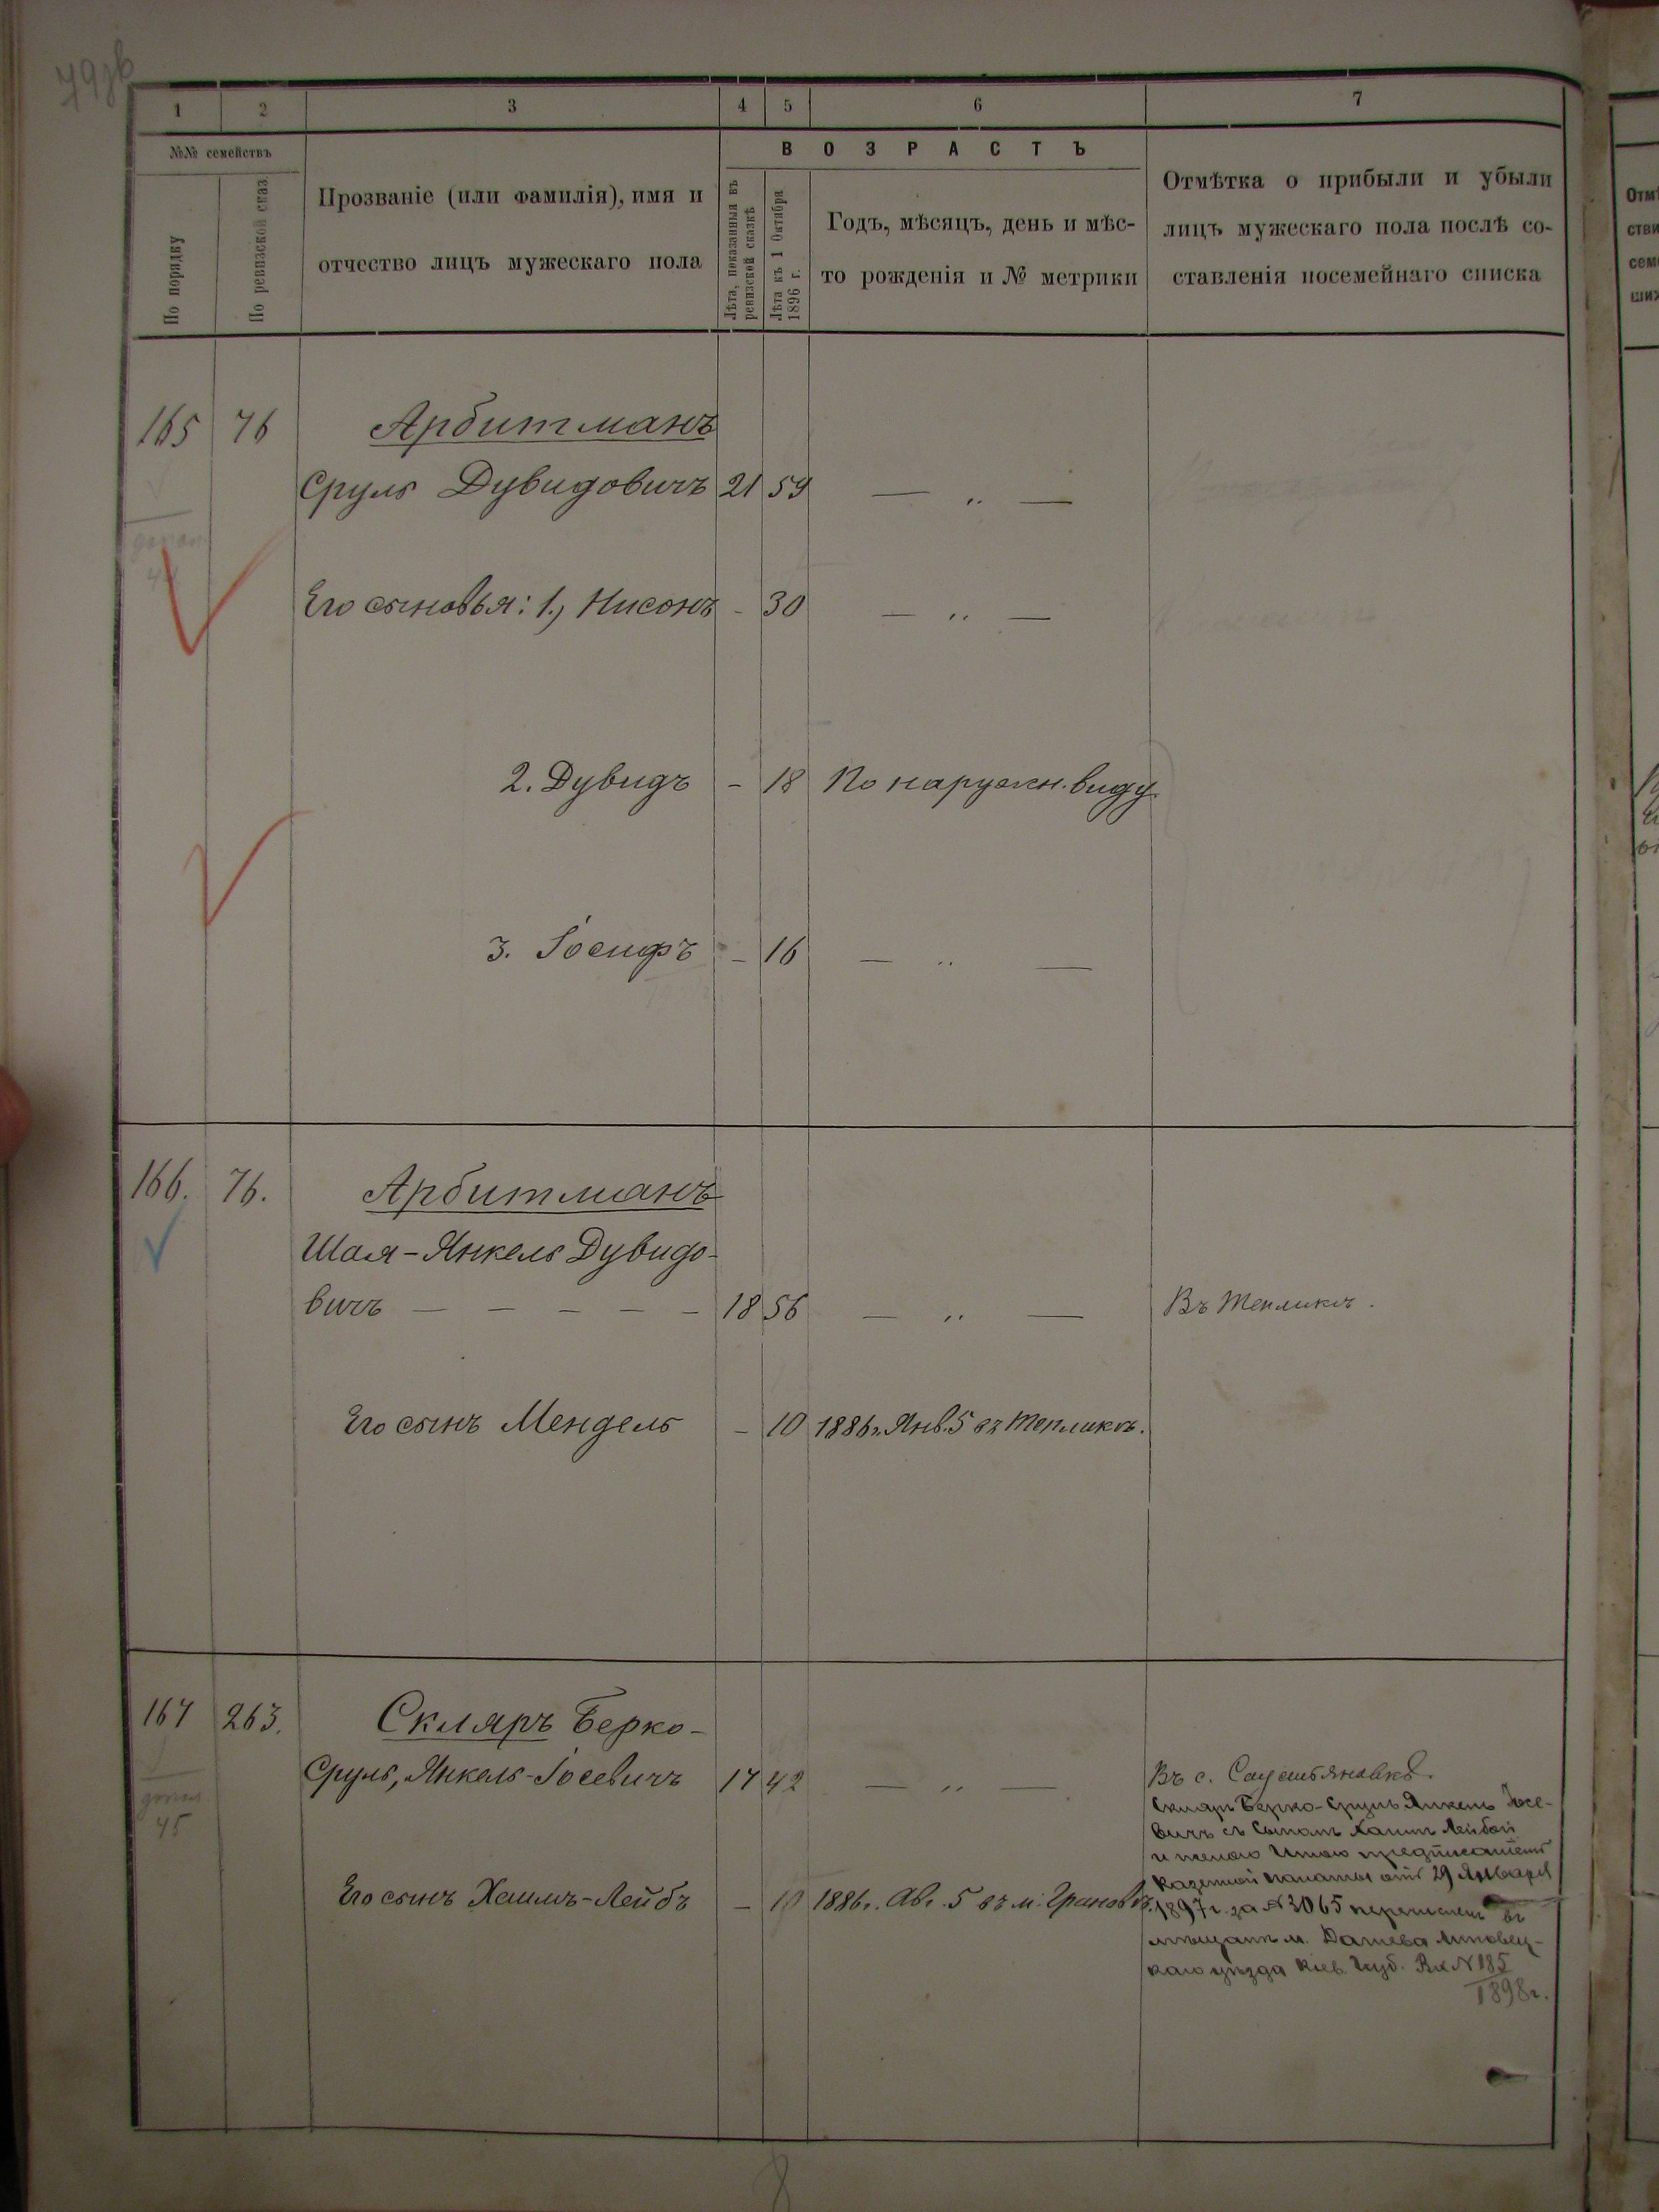 79об
1 2 3 4 5 6 7
№№ семействъ
По порядку
По ревизской сказ
Прозваніе (или фамилія), имя и
отчество лицъ мужескаго пола
ВОЗРАСТЪ
Лѣта, показанныя въ
ревизской сказкѣ
Лѣта къ 1 Октября
1896 г.
Годъ, мѣсяцъ, день и мѣс-
то рожденія и № метрики
Отмѣтка о прибыли и убыли
лицъ мужескаго пола послѣ со-
ставленія посемейнаго списка
165 76 Арбитманъ
Сруль Дувидовичъ 21 59 — „ —
Его сыновья: 1., Нисонъ - 30 — „ —
2. Дувидъ - 18 По наружн. виду
3. Іосифъ - 16 — „ —
166. 76. Арбитманъ
Шая-Янкель Дувидо-
вичъ — — — — — 18 56 — „ — Въ Тепликѣ.
Его сынъ Мендель - 10 1886г. Янв. 5 въ Тепликѣ.
167 263. Скляръ Берко-
Сруль, Янкель-Іосевичъ 17 42 — „ — Въ с.
допол.
45
Скляръ Берко-Сруль Янкель Іосе-
вичъ съ Сыномъ Хаимъ Лейбой
и женою предписаніемъ
Казенной палаты отъ 29 Января
Его сынъ Хаимъ-Лейбъ - 10 1886г. Авг. 5 въ м. Грановѣ.
1897 г. за № 3065 перечислен въ
мѣщане м. Дашева Липовец-
каго уѣзда Кіев. Губ. Вх № 185
1898г.